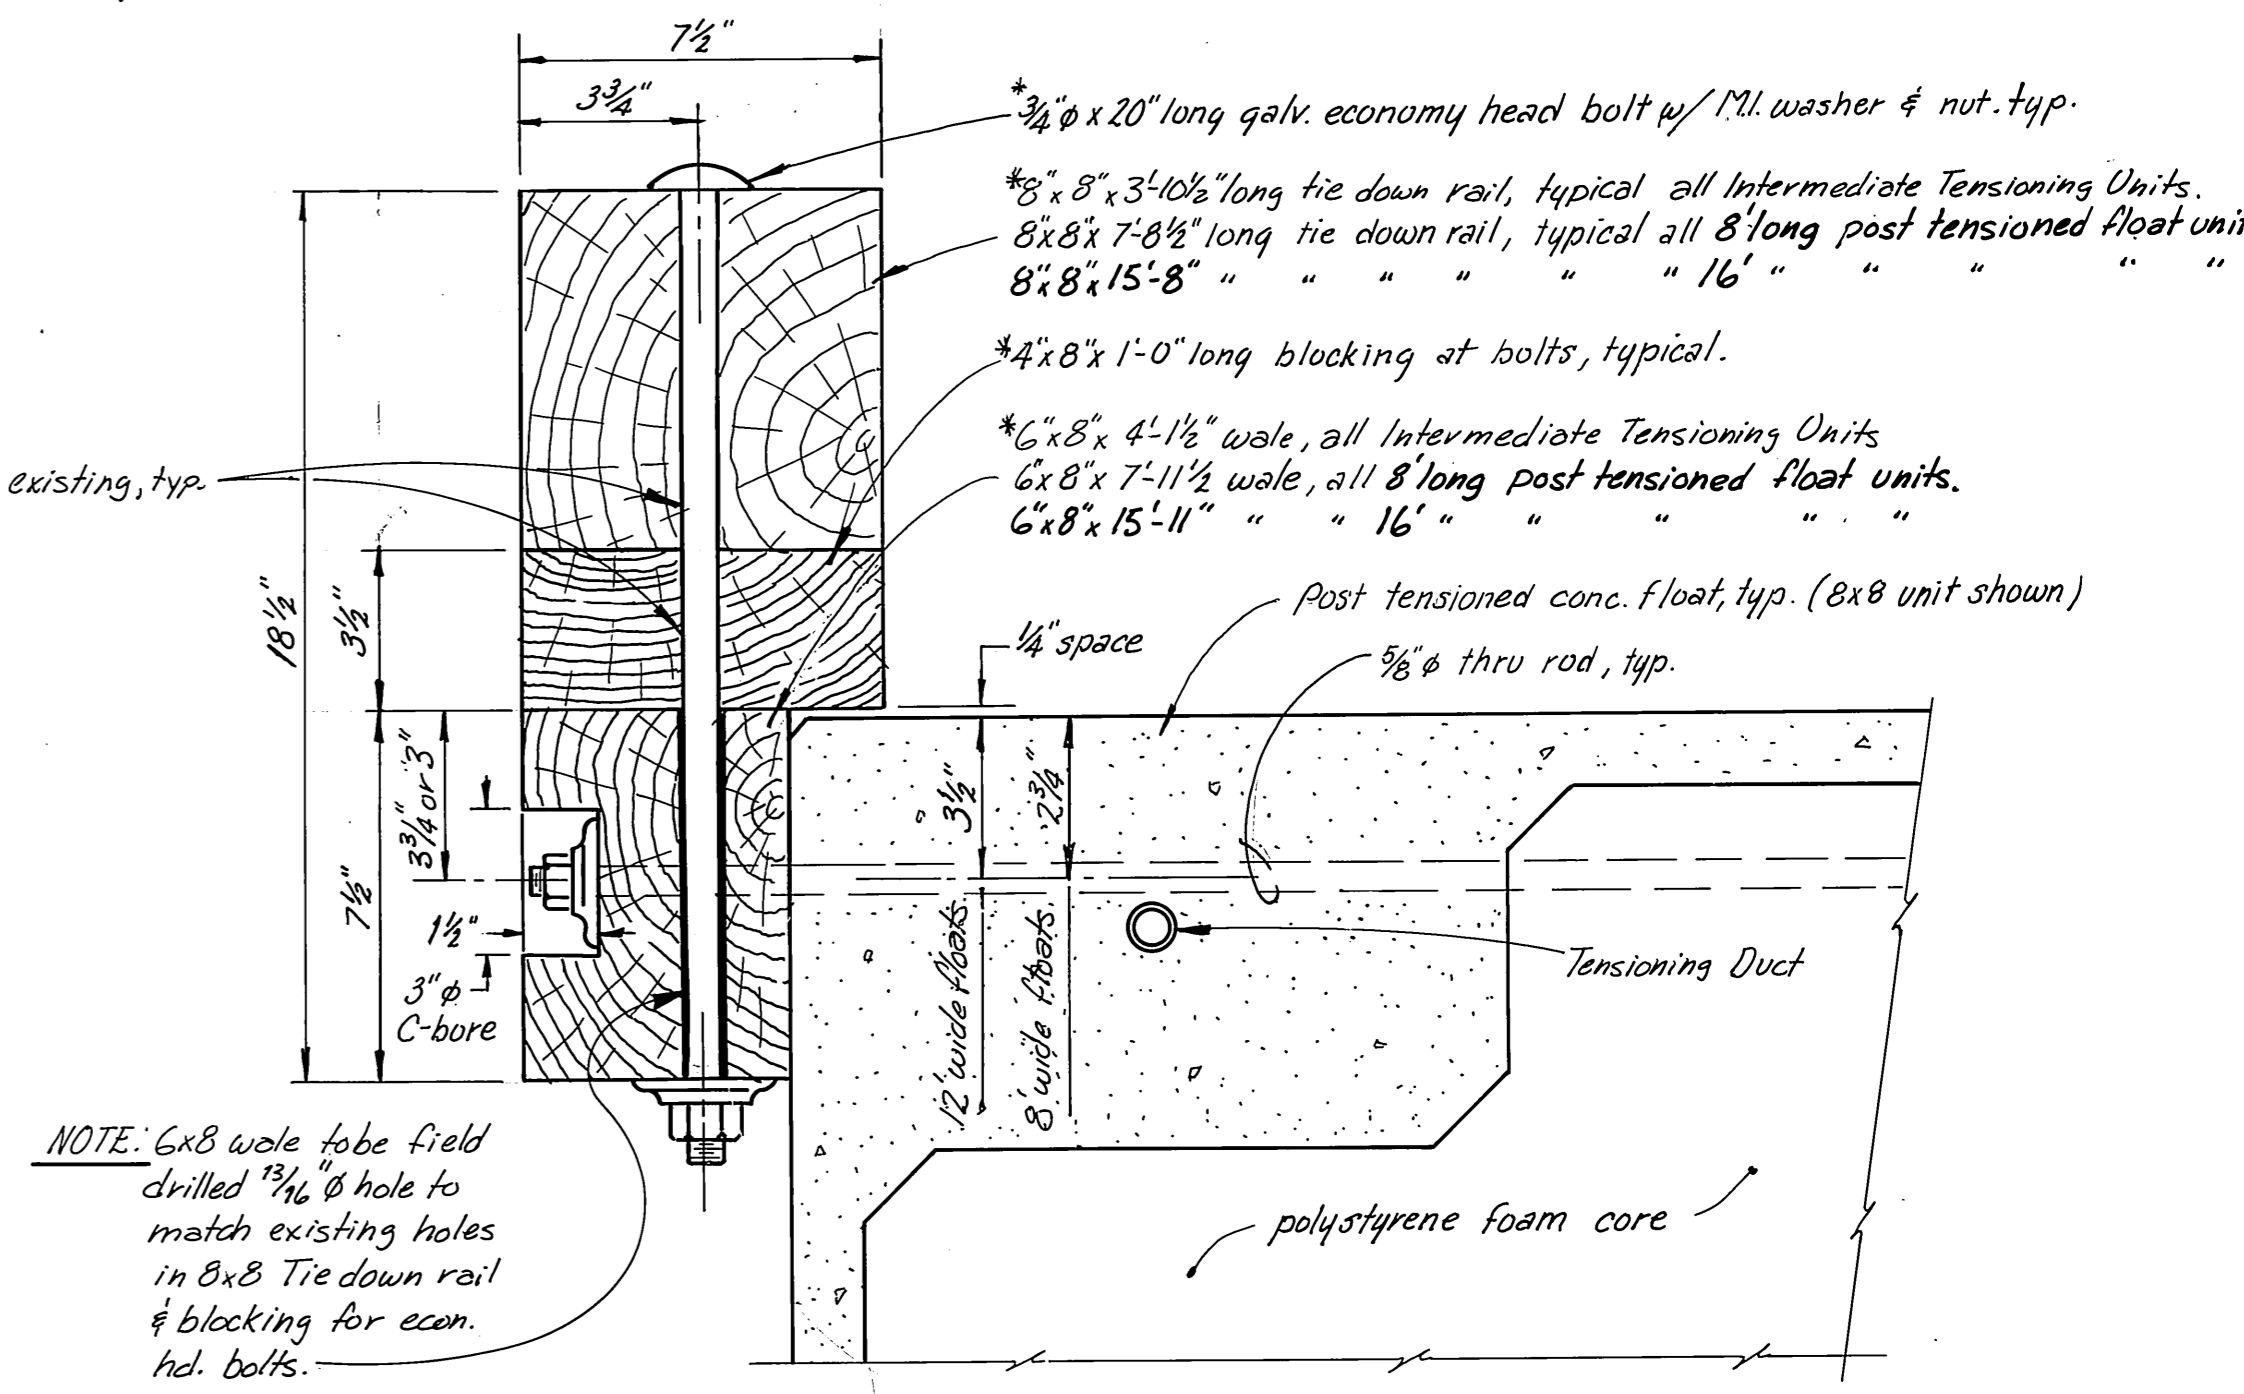 7½"
3¾"
*¾"φ x 20" long galv. economy head bolt w/ M.I. washer & nut. typ.
*8"x 8"x 3'-10½" long tie down rail, typical all Intermediate Tensioning Units.
8"x8"x 7'-8½" long tie down rail, typical all 8' long post tensioned float unit
8"x 8"x 15'-8" " " " " " " 16' " " " " "
*4"x8"x 1'-0" long blocking at bolts, typical.
*6"x8"x 4'-1½" wale, all Intermediate Tensioning Units
6"x8"x 7'-11½ wale, all 8' long post tensioned float units.
6"x8"x 15'-11" " " 16' " " " " "
existing, typ.
18½"
3½"
Post tensioned conc. float, typ. (8x8 unit shown)
¼" space
⅝"φ thru rod, typ.
3¾" or 3"
7½"
1½"
3"φ
C-bore
3½"
12' wide floats
2¾"
8' wide floats.
Tensioning Duct
polystyrene foam core
NOTE: 6x8 wale to be field
drilled 13/16"φ hole to
match existing holes
in 8x8 Tie down rail
& blocking for econ.
hd. bolts.